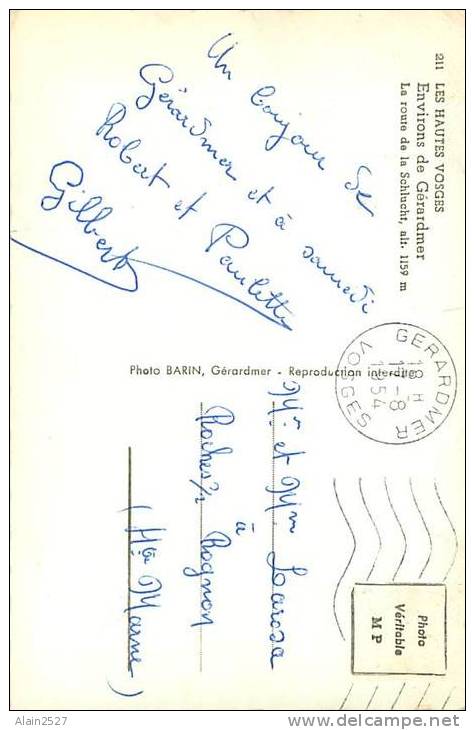 211 LES HAUTES VOSGES
Environs de Gérardmer
La route de la Schlucht, alt. 1159 m
Un bonjour de
Gérardmer et à samedi
Robert et Paulette
Gilbert
Photo BARIN, Gérardmer - Reproduction interdite
GERARDMER
18 H
-8
1954
VOSGES
Mr et Mm Larosa
Roches s/
à
Rognon
(Hte Marne)
Photo
Véritable
M P
Alain2527
delcampe.net